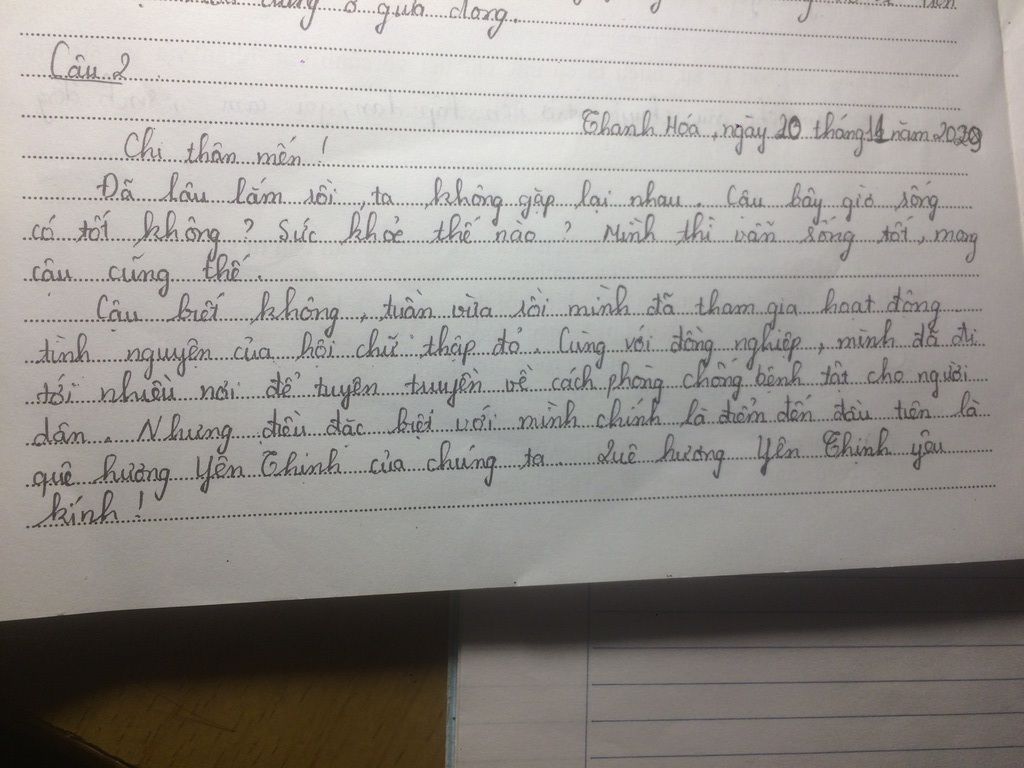 ở quá dòng.
Câu 2
Thanh Hóa, ngày 20 tháng 11 năm 2029
Chi thân mến!
Đã lâu lắm rồi, ta không gặp lại nhau. Cậu bây giờ sống
có tốt không? Sức khoẻ thế nào? Mình thì vẫn sống tốt, mong
cậu cũng thế.
Cậu biết không, tuần vừa rồi mình đã tham gia hoạt động
tình nguyện của hội chữ thập đỏ. Cùng với đồng nghiệp, mình đã đi
tới nhiều nơi để tuyên truyền về cách phòng chống bệnh tật cho người
dân. Nhưng điều đặc biệt với mình chính là điểm đến đầu tiên là
quê hương Yên Thịnh của chúng ta. Quê hương Yên Thịnh yêu
kính!